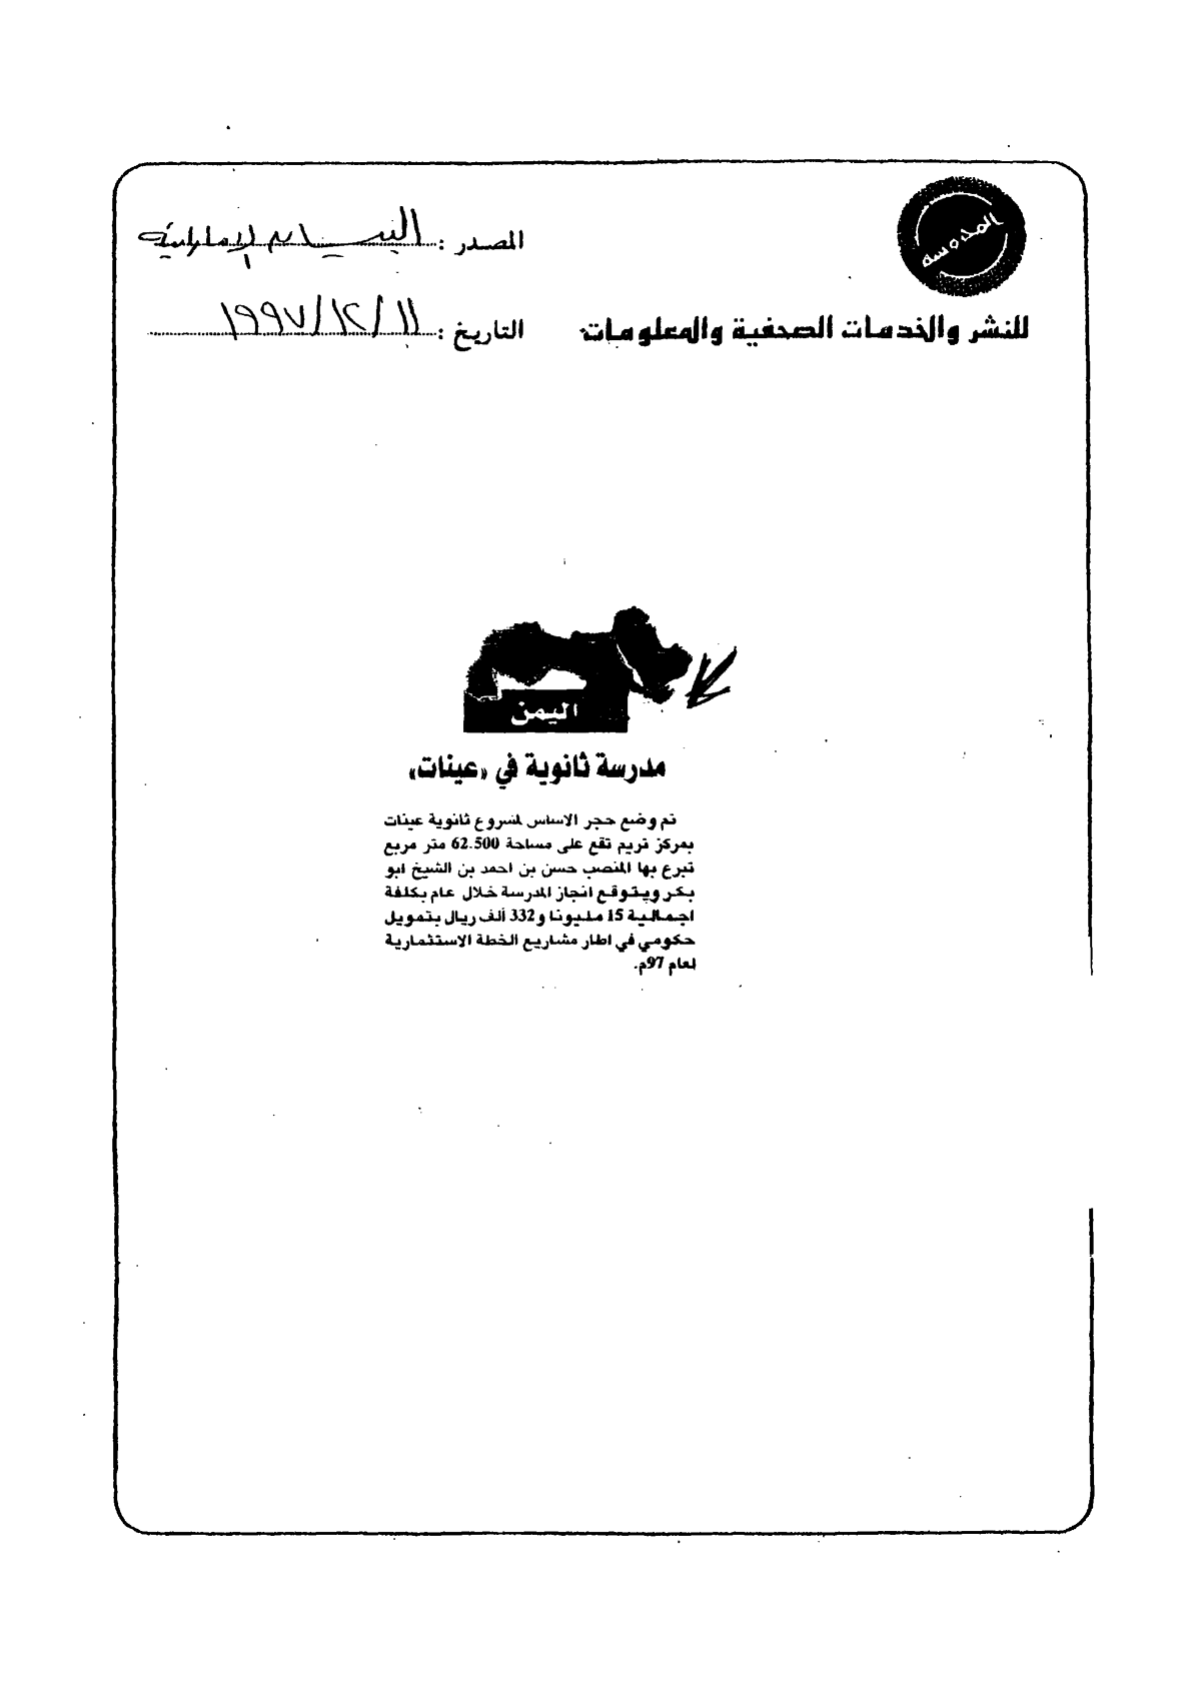 المدوسة
للنشر والخدمات الصحفية والمعلومات
المصدر : البيان الإماراتية
التاريخ : ١١/١٢/١٩٩٧
اليمن
مدرسة ثانوية في «عينات»
تم وضع حجر الاساس لمشروع ثانوية عينات
بمركز تريم تقع على مساحة 62.500 متر مربع
تبرع بها المنصب حسن بن احمد بن الشيخ ابو
بكر ويتوقع انجاز المدرسة خلال عام بكلفة
اجمالية 15 مليونا و332 ألف ريال بتمويل
حكومي في اطار مشاريع الخطة الاستثمارية
لعام 97م.